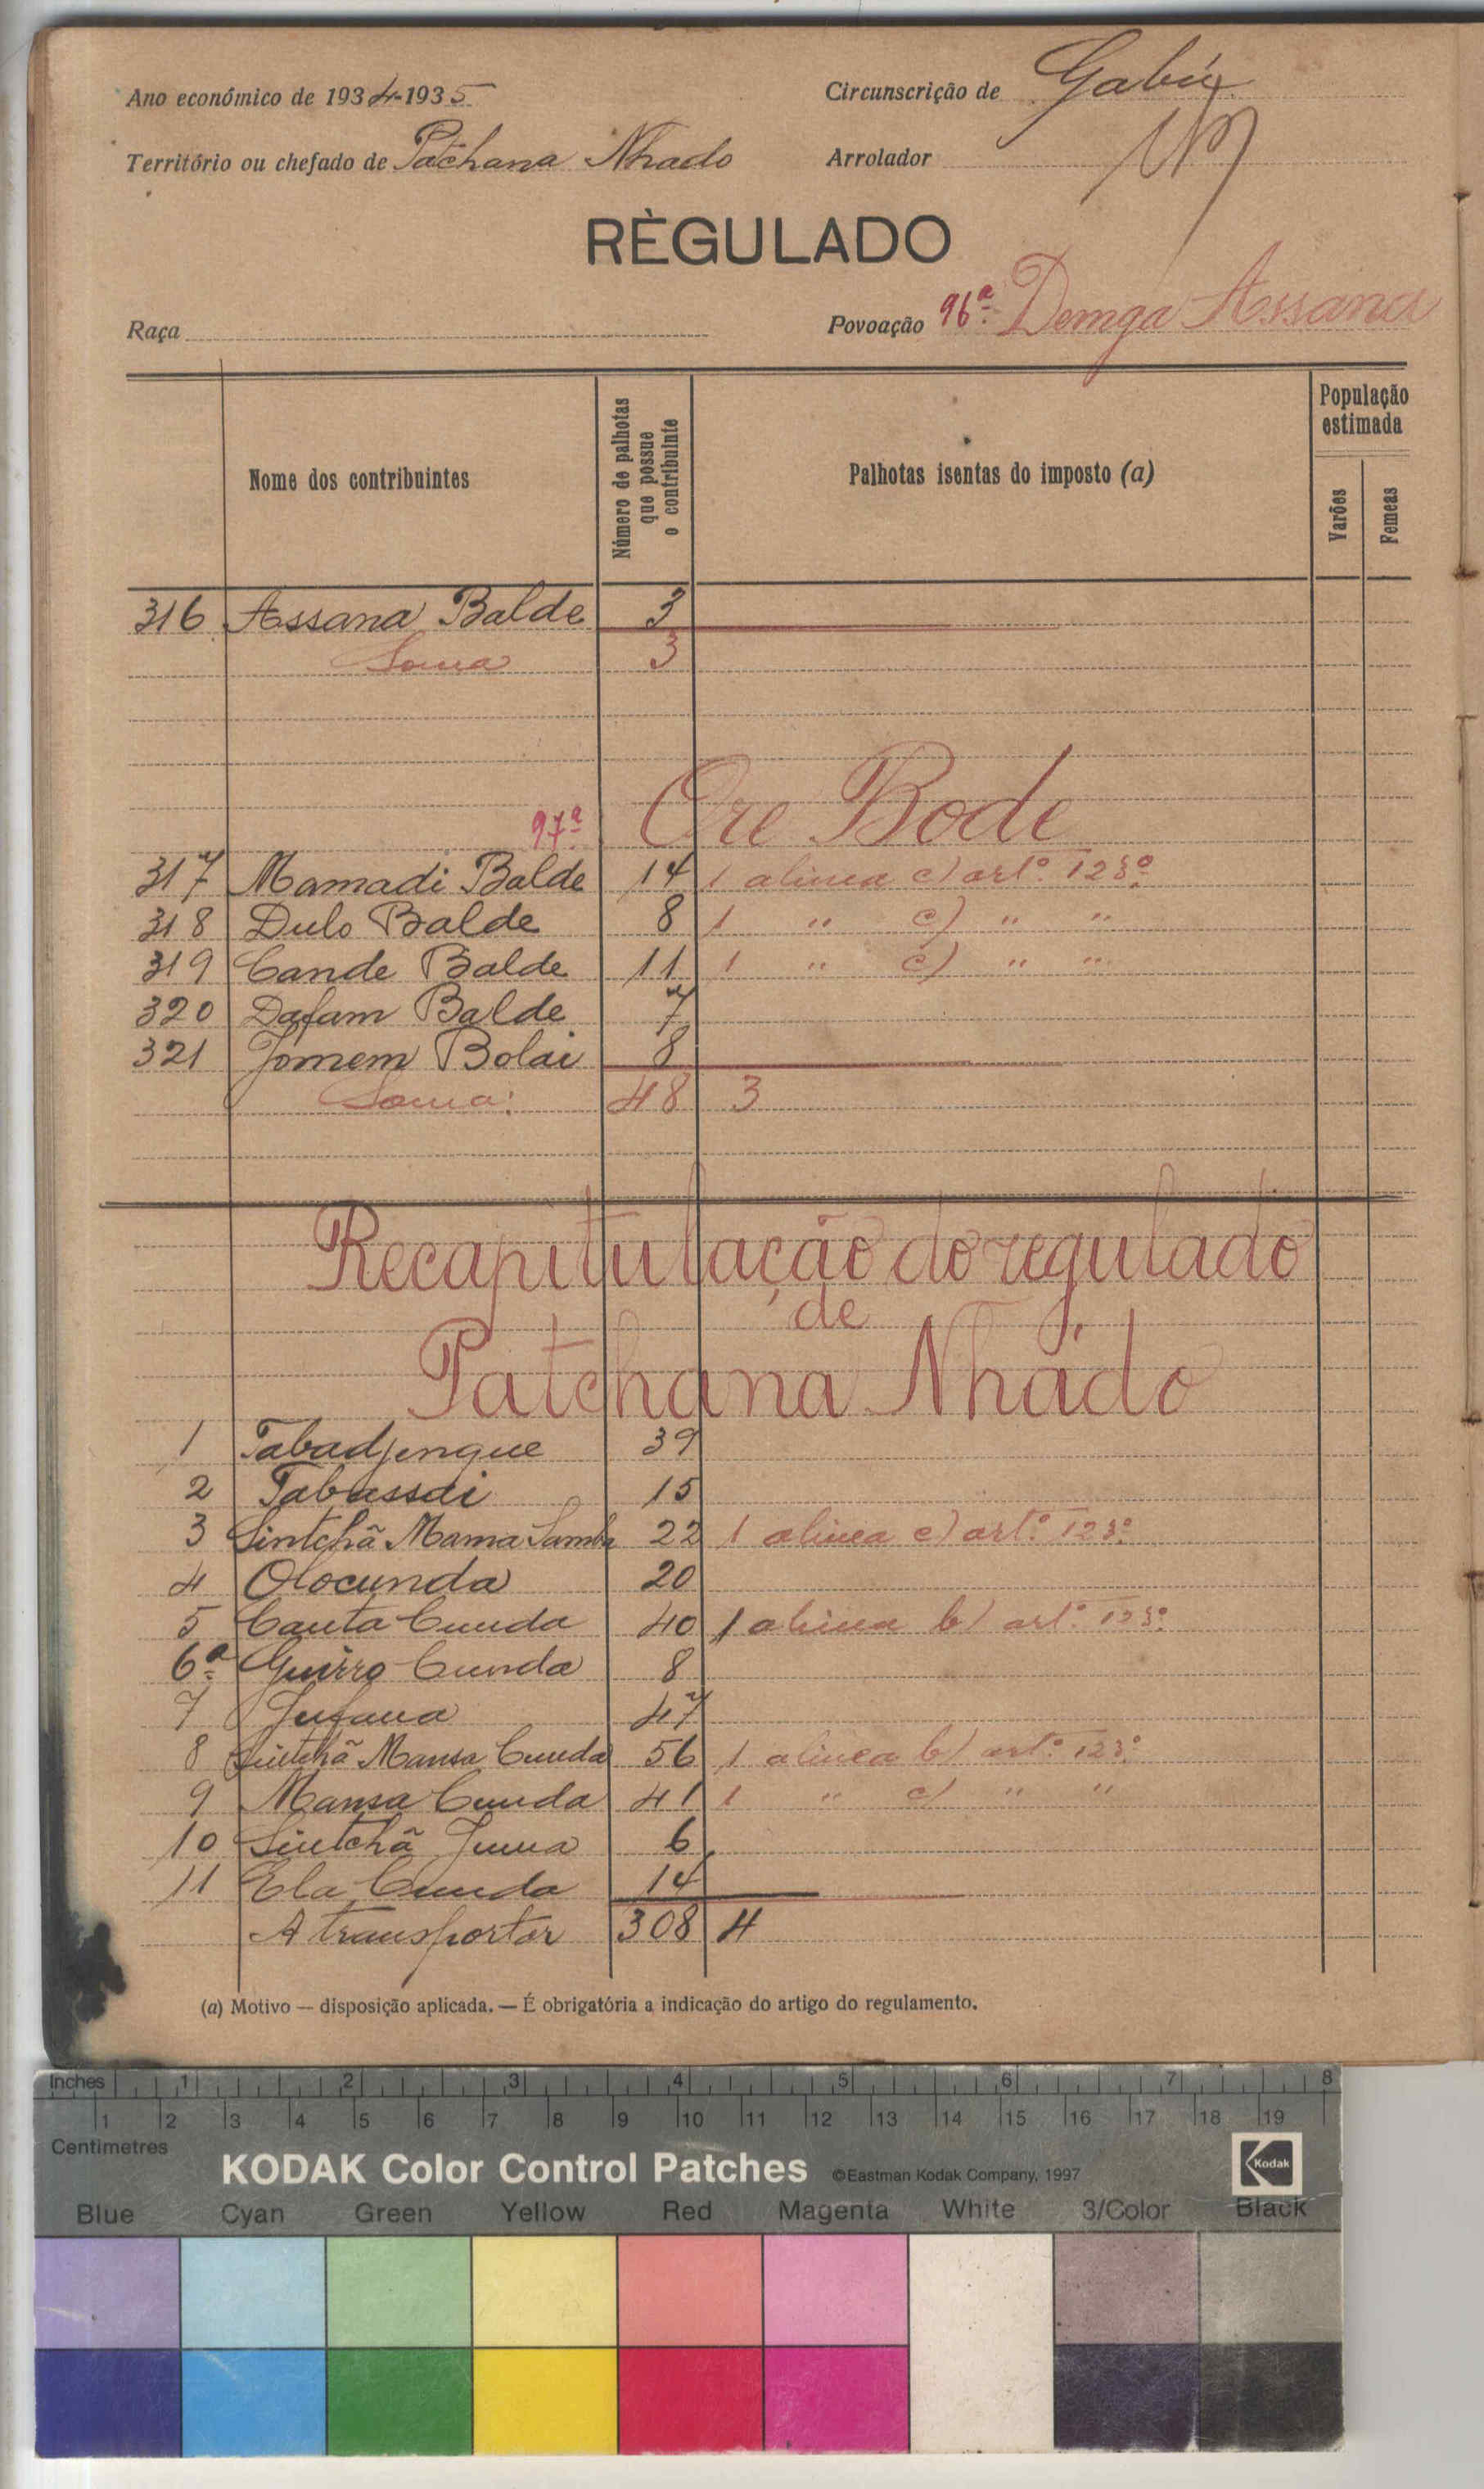 Ano económico de 1934-1935 Circunscrição de Gabú
Território ou chefado de Patchana Nhado Arrolador
RÈGULADO
Raça Povoação 96ª Demga Assana
Nome dos contribuintes
Número de palhotas que possue o contribuinte
Palhotas isentas do imposto (a)
População estimada
Varões
Femeas
316 Assana Balde 3
Soma 3
97ª Ore Bode
317 Mamadi Balde 14 1 alinea c) artº 123º
318 Dulo Balde 8 1 " c) " "
319 Cande Balde 11 1 " c) " "
320 Dafam Balde 7
321 Jomem Bolai 8
Soma: 48 3
Recapitulação do regulado
de
Patchana Nhádo
1 Tabadjenque 39
2 Tabassai 15
3 Sintchã Mama Samba 22 1 alinea c) artº 123º
4 Olocunda 20
5 Canta Cunda 40 1 alinea b) artº 123º
6ª Guirro Cunda 8
7 Jufana 47
8 Sintchã Mansa Cunda 56 1 alinea b) artº 123º
9 Mansa Cunda 41 1 " c) " "
10 Sintchã Juma 6
11 Ela Cunda 14
A transportar 308 4
(a) Motivo — disposição aplicada. — É obrigatória a indicação do artigo do regulamento.
Inches 1 2 3 4 5 6 7 8
1 2 3 4 5 6 7 8 9 10 11 12 13 14 15 16 17 18 19
Centimetres
KODAK Color Control Patches ©Eastman Kodak Company, 1997 Kodak
Blue Cyan Green Yellow Red Magenta White 3/Color Black